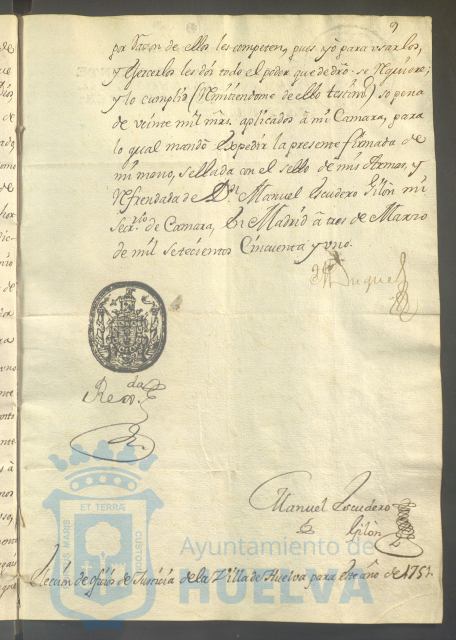 9
por razon de ellos les competen, pues yo para usarlos,
y exercerlos les doi todo el poder que de dro. se requiere;
y lo cumplio (remitiendome de ello testimo.) so pena
de veinte mil mrs. aplicados â mi Camara, para
lo qual mandè expedir la presente firmada de
mi mano, sellada con el sello de mis Armas, y
refrendada de Dn. Manuel Escudero Gilòn mi
Secrio. de Camara, En Madrid â tres de Marzo
de mil setecientos Cincuenta y uno.
El Duque
Rexda.
Manuel Escudero
Gilòn
Elecciòn de ofizs. de Justicia de la Villa de Huelva para este año de 1751.
ET TERRAE
MARIS
CUSTO
Ayuntamiento de
HUELVA